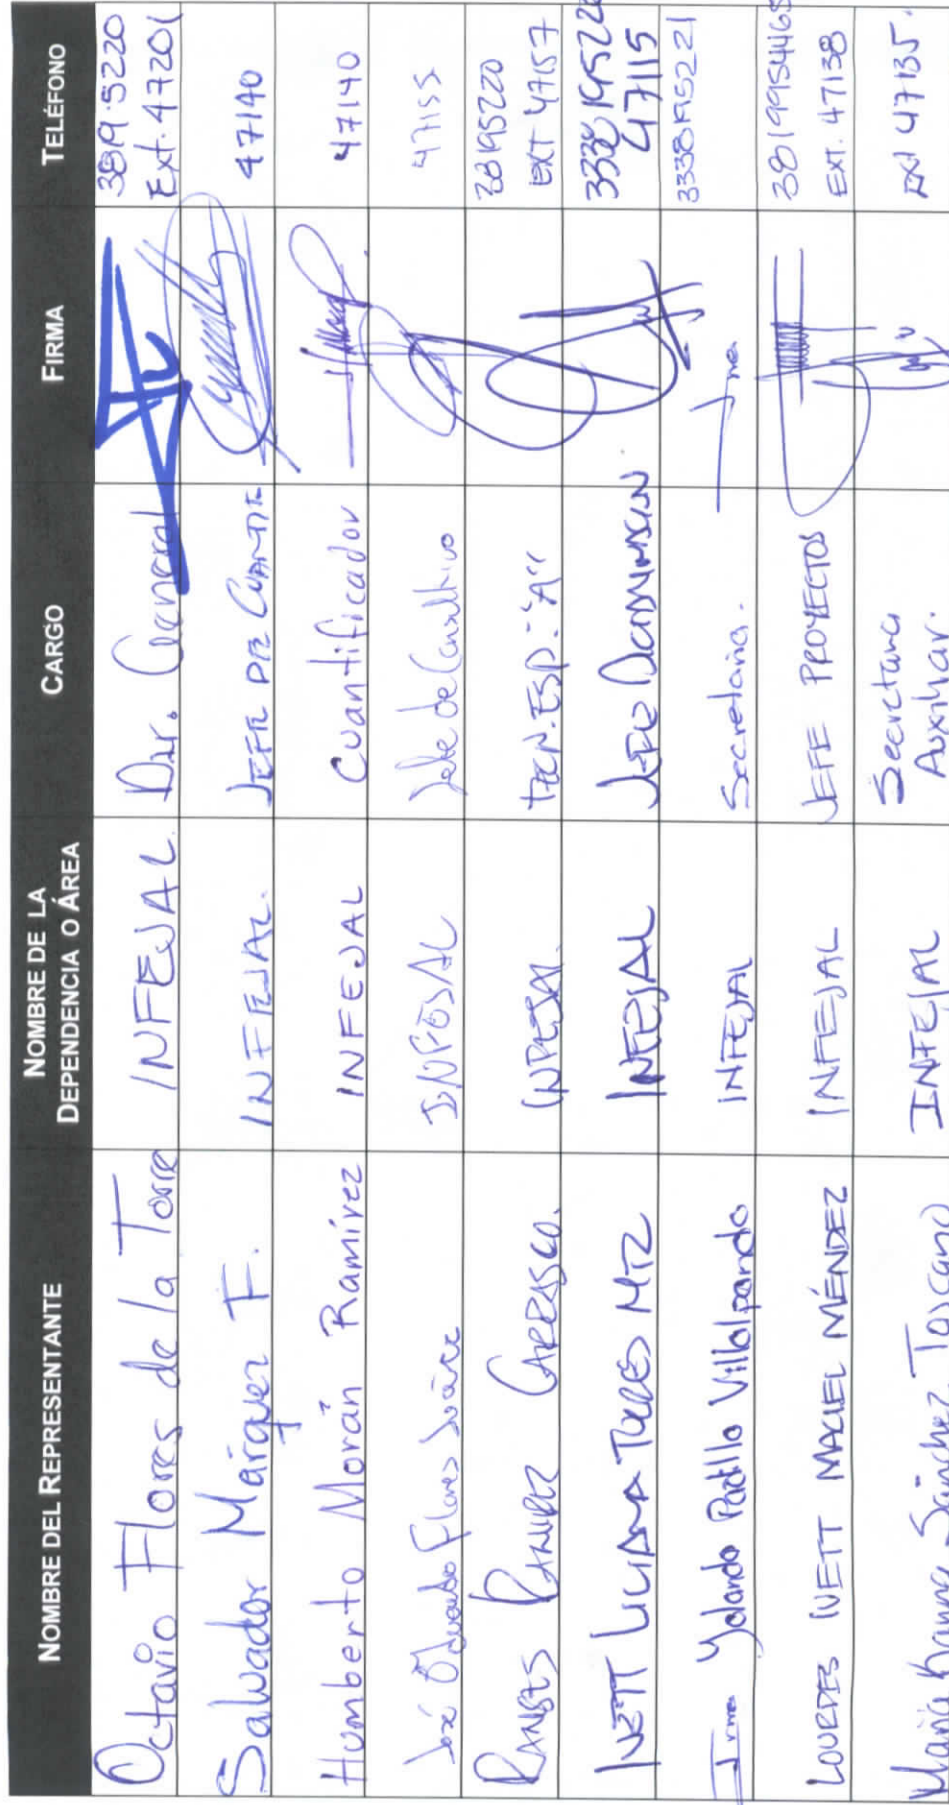 NOMBRE DEL REPRESENTANTE NOMBRE DE LA DEPENDENCIA O ÁREA CARGO FIRMA TELÉFONO
Octavio Flores de la Torre INFEJAL Dir. General 3819·5220 Ext. 47201
Salvador Márquez F. INFEJAL. JEFE DE CUANTIF 47140
Humberto Morán Ramírez INFEJAL Cuantificador 47140
José Flores INFEJAL Jefe de 47155
RAMIREZ CARRASCO. INFEJAL TECN. ESP. "A" 38195220 EXT 47157
IVETT LILIANA TORRES MTZ INFEJAL JEFE 47115
Irma Yolanda Padilla Villalpando INFEJAL Secretaria. Irma 3338195221
LOURDES IVETT MACIEL MÉNDEZ INFEJAL JEFE PROYECTOS EXT. 47138
María Sánchez Toscano INFEJAL Secretaria Auxiliar. Ext 47135.